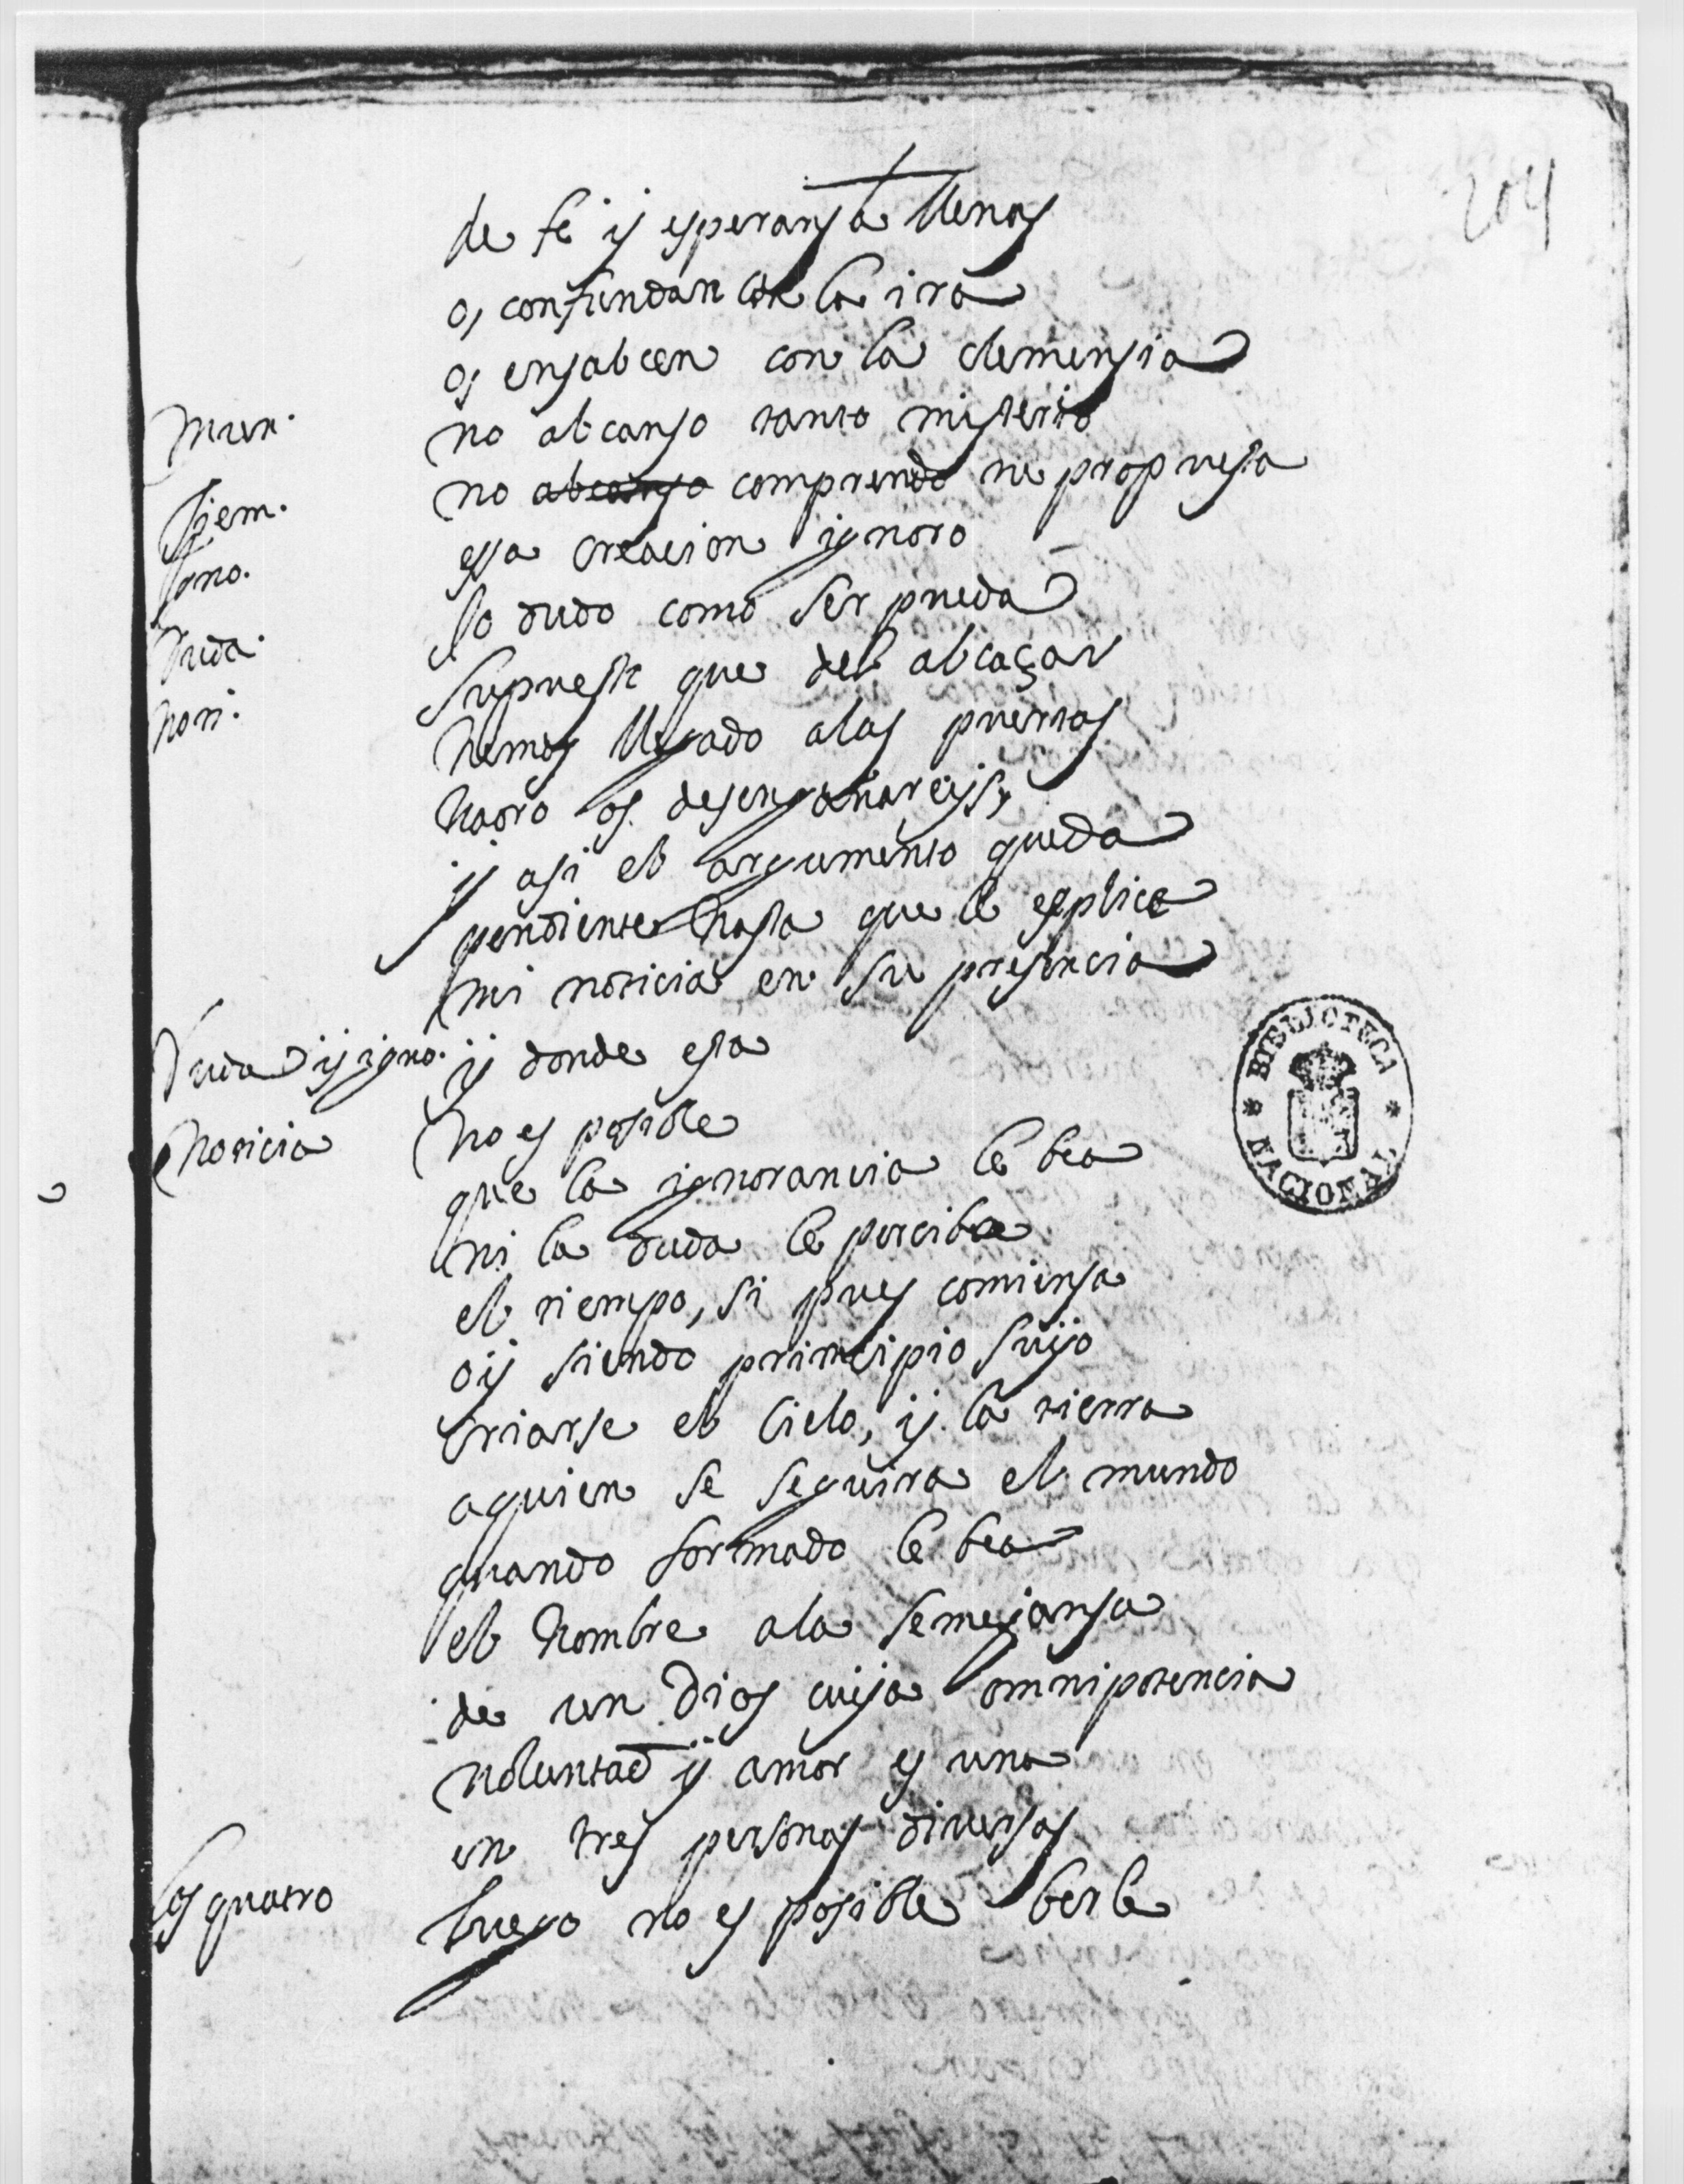 204
de fe y esperansa llenos
os confundan con la ira
os ensalcen con la clemensia
Mun. no alcanso tanto misterio
Tiem. no alcanso comprendo tu propuesta
Igno. essa creacion ignoro
Duda. Yo dudo como ser pueda
Noti. Supuesto que del alcaçar
hemos llegado a las puertas
haora os desengañareys,
y asi el argumento queda
pendiente hasta que le esplice
mi noticia en su presencia
Duda y igno. y donde esta
Noticia No es posible
que la ignorancia le bea
ni la duda le perciba
el tiempo, si pues comiensa
oy siendo principio suyo
criarse el Cielo, y la tierra
a quien se seguira el mundo
quando formado le bea
el hombre a la semejansa
de un Dios cuya omnipotencia
voluntad y amor es una
en tres personas diversas
los quatro Luego no es posible berle
BIBLIOTECA NACIONAL